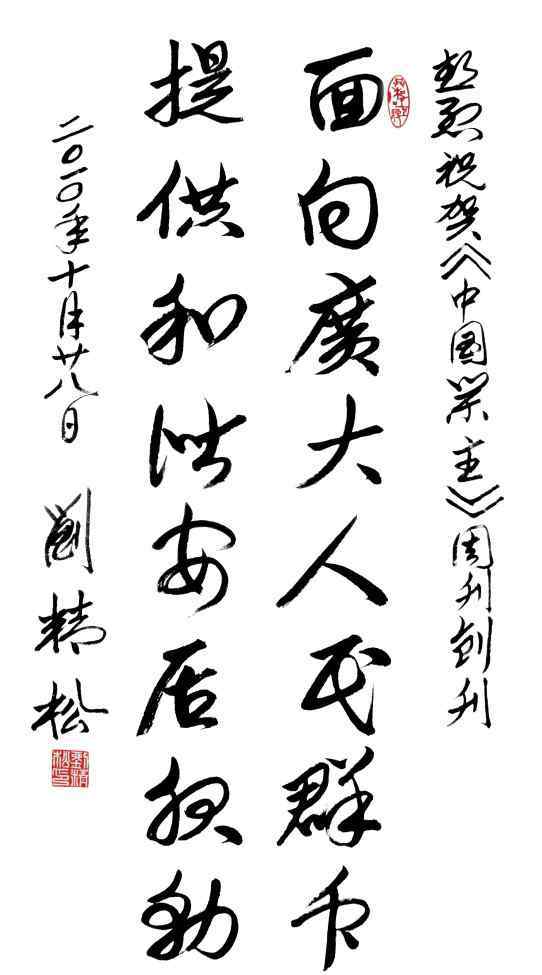 热烈祝贺《中国业主》周刊创刊
面向廣大人民群众
提供和谐安居服务
二〇一〇年十月廿八日 劉精松